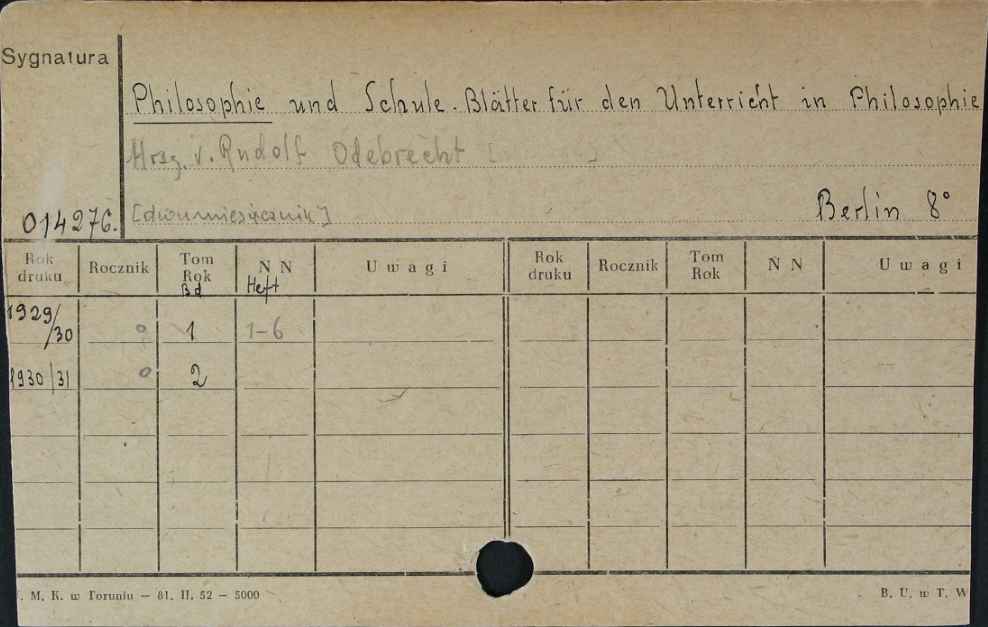 Sygnatura
Philosophie und Schule. Blätter für den Unterricht in Philosophie
Hrsg. v. Rudolf Odebrecht
014276. [dwumiesięcznik] Berlin 8°
Rok druku Rocznik Tom Rok N N U w a g i Rok druku Rocznik Tom Rok N N U w a g i
Bd Heft
1929/30 0 1 1-6
1930/31 0 2
M. K. w Toruniu — 81. II. 52 — 5000 B. U. w T. W